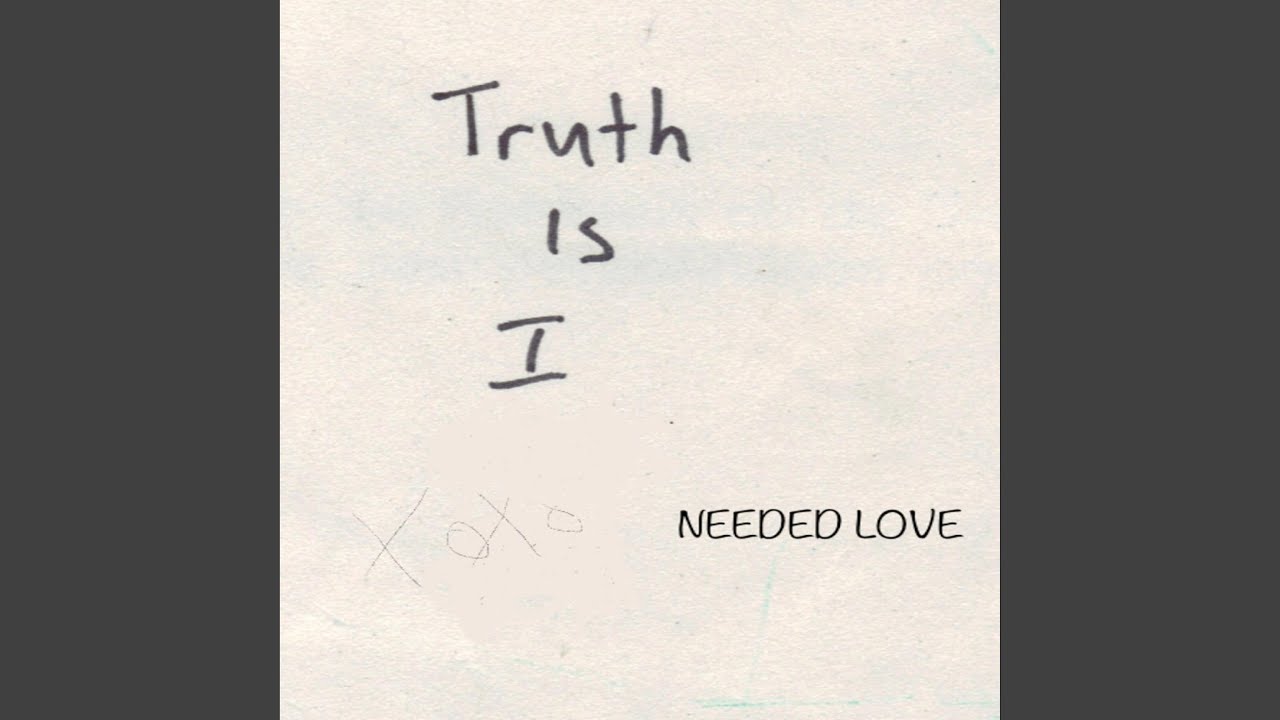 Truth
Is
I
XoXo
NEEDED LOVE